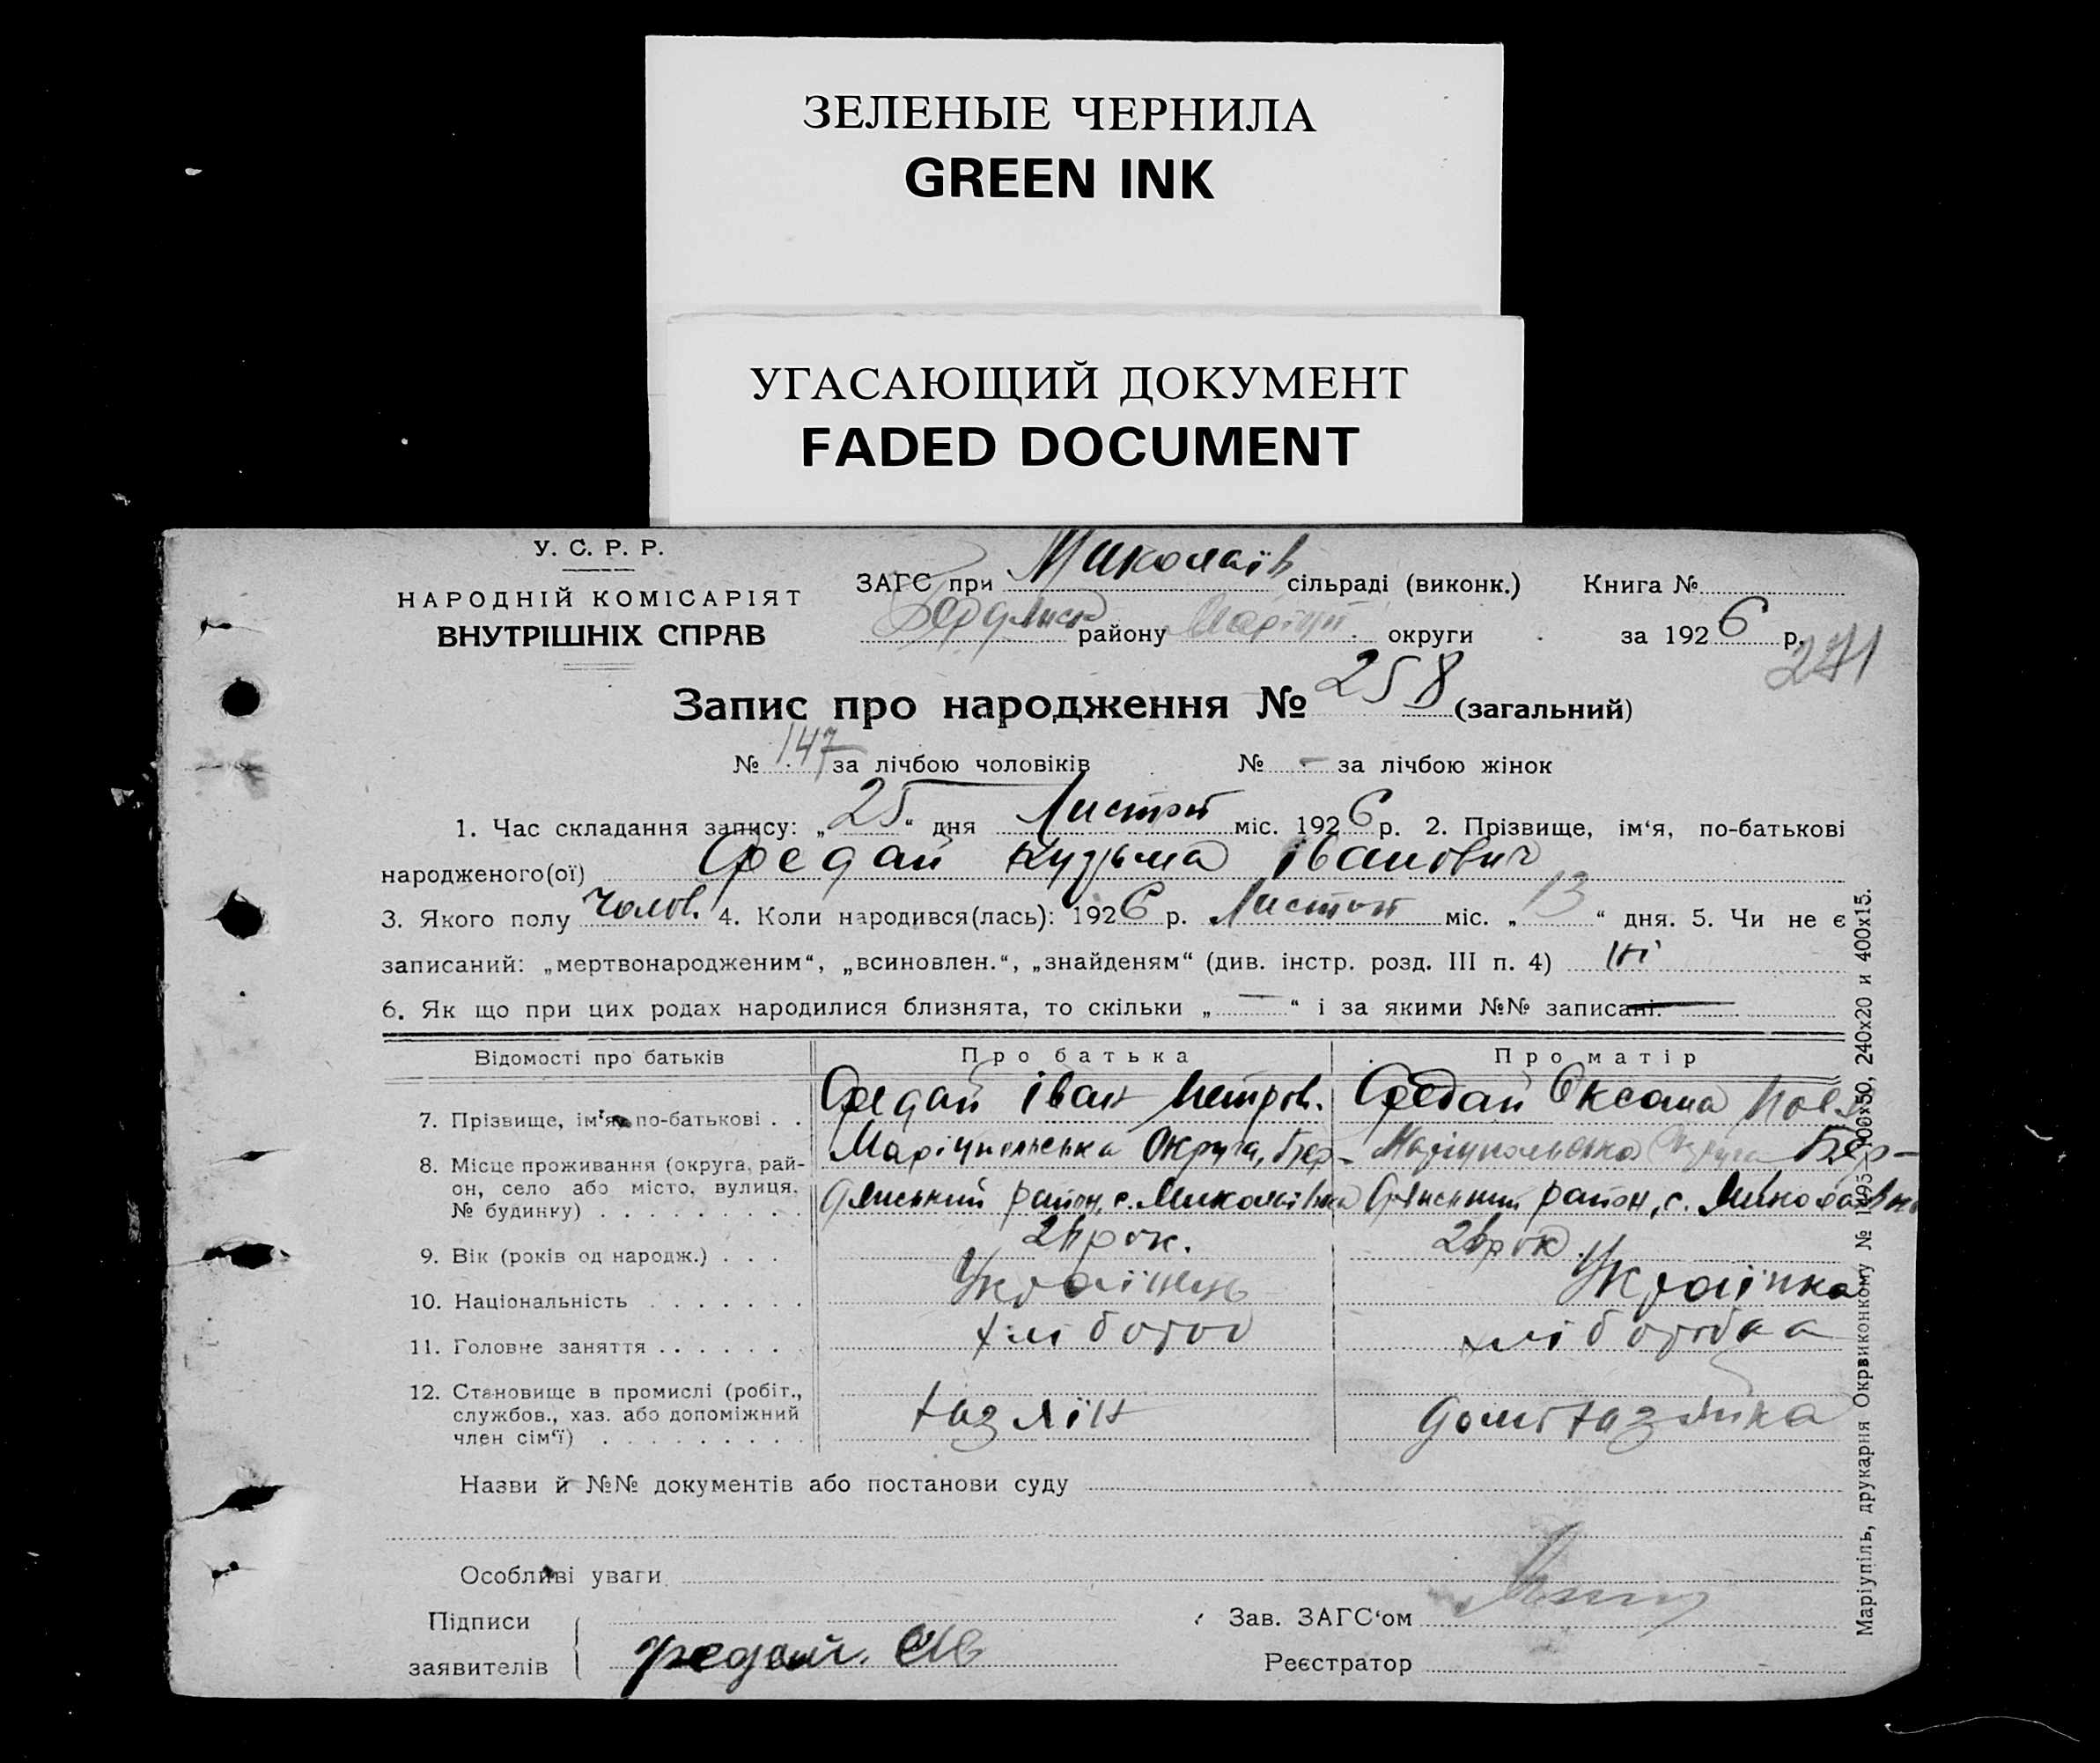 ЗЕЛЕНЫЕ ЧЕРНИЛА
GREEN INK
УГАСАЮЩИЙ ДОКУМЕНТ
FADED DOCUMENT
У. С. Р. Р.
НАРОДНІЙ КОМІСАРІЯТ
ВНУТРІШНІХ СПРАВ
ЗАГС при Миколаїв сільраді (виконк.) Книга №
Бердянськ району Маріуп. округи за 1926 р.
271
Запис про народження № 258 (загальний)
№ 147 за лічбою чоловіків № - за лічбою жінок
1. Час складання запису: „25“ дня Листоп міс. 1926 р. 2. Прізвище, ім‘я, по-батькові
народженого(ої) Федай Кузьма Іванович
3. Якого полу Чолов. 4. Коли народився(лась): 1926 р. Листоп міс. „13“ дня. 5. Чи не є
записаний: „мертвонародженим“, „всиновлен.“, „знайденям“ (див. інстр. розд. III п. 4) ні
6. Як що при цих родах народилися близнята, то скільки „—“ і за якими №№ записані:
Відомості про батьків Про батька Про матір
7. Прізвище, ім‘я, по-батькові . . Федай Іван Петров. Федай Оксана
8. Місце проживання (округа, рай- Маріупільська Округа, Бер- Маріупольська Округа Бер-
он, село або місто, вулиця, дянський район, с. Миколаївка дянський район, с.
№ будинку) . . . . . . . . .
9. Вік (років од народж.) . . . рок. рок.
10. Національність . . . . . . . Українець Українка
11. Головне заняття . . . . . . . хлібороб хліборобка
12. Становище в промислі (робіт.,
службов., хаз. або допоміжний хазяїн домохазяйка
член сім‘ї) . . . . . . . . .
Назви й №№ документів або постанови суду
Особливі уваги
Підписи
заявителів Федай.
Зав. ЗАГС‘ом
Реєстратор
Маріупіль, друкарня Окрвиконкому № 1195—100х50, 240х20 и 400х15.